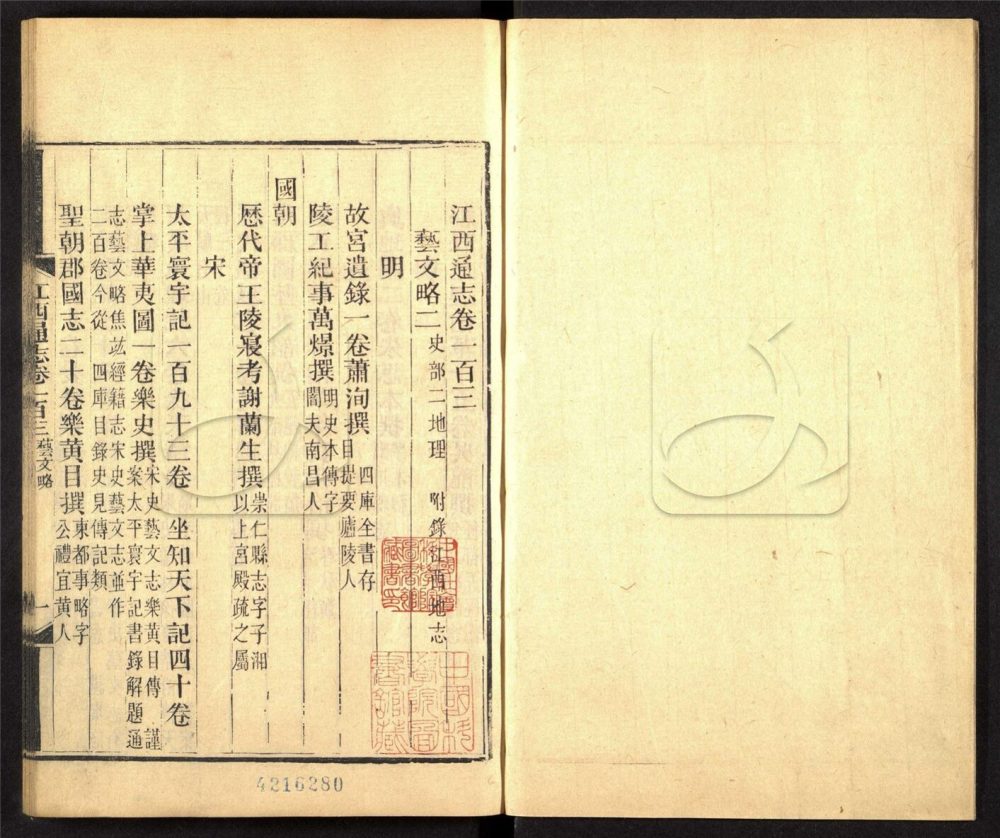 江西通志卷一百三
藝文略二 史部二地理 附錄江西地志
明
故宮遺錄一卷蕭洵撰 四庫全書存目提要廬陵人
陵工紀事萬燝撰 明史本傳字闇夫南昌人
國朝
歷代帝王陵寢考謝蘭生撰 崇仁縣志字子湘以上宮殿疏之屬
宋
太平寰宇記一百九十三卷 坐知天下記四十卷
掌上華夷圖一卷樂史撰 宋史藝文志樂黃目傳 謹案太平寰宇記書錄解題通
志藝文略焦竑經籍志宋史藝文志並作
二百卷今從 四庫目錄史見傳記類
聖朝郡國志二十卷樂黃目撰 東都事略字公禮宜黃人
江西通志卷一百三 藝文略 一
4216280